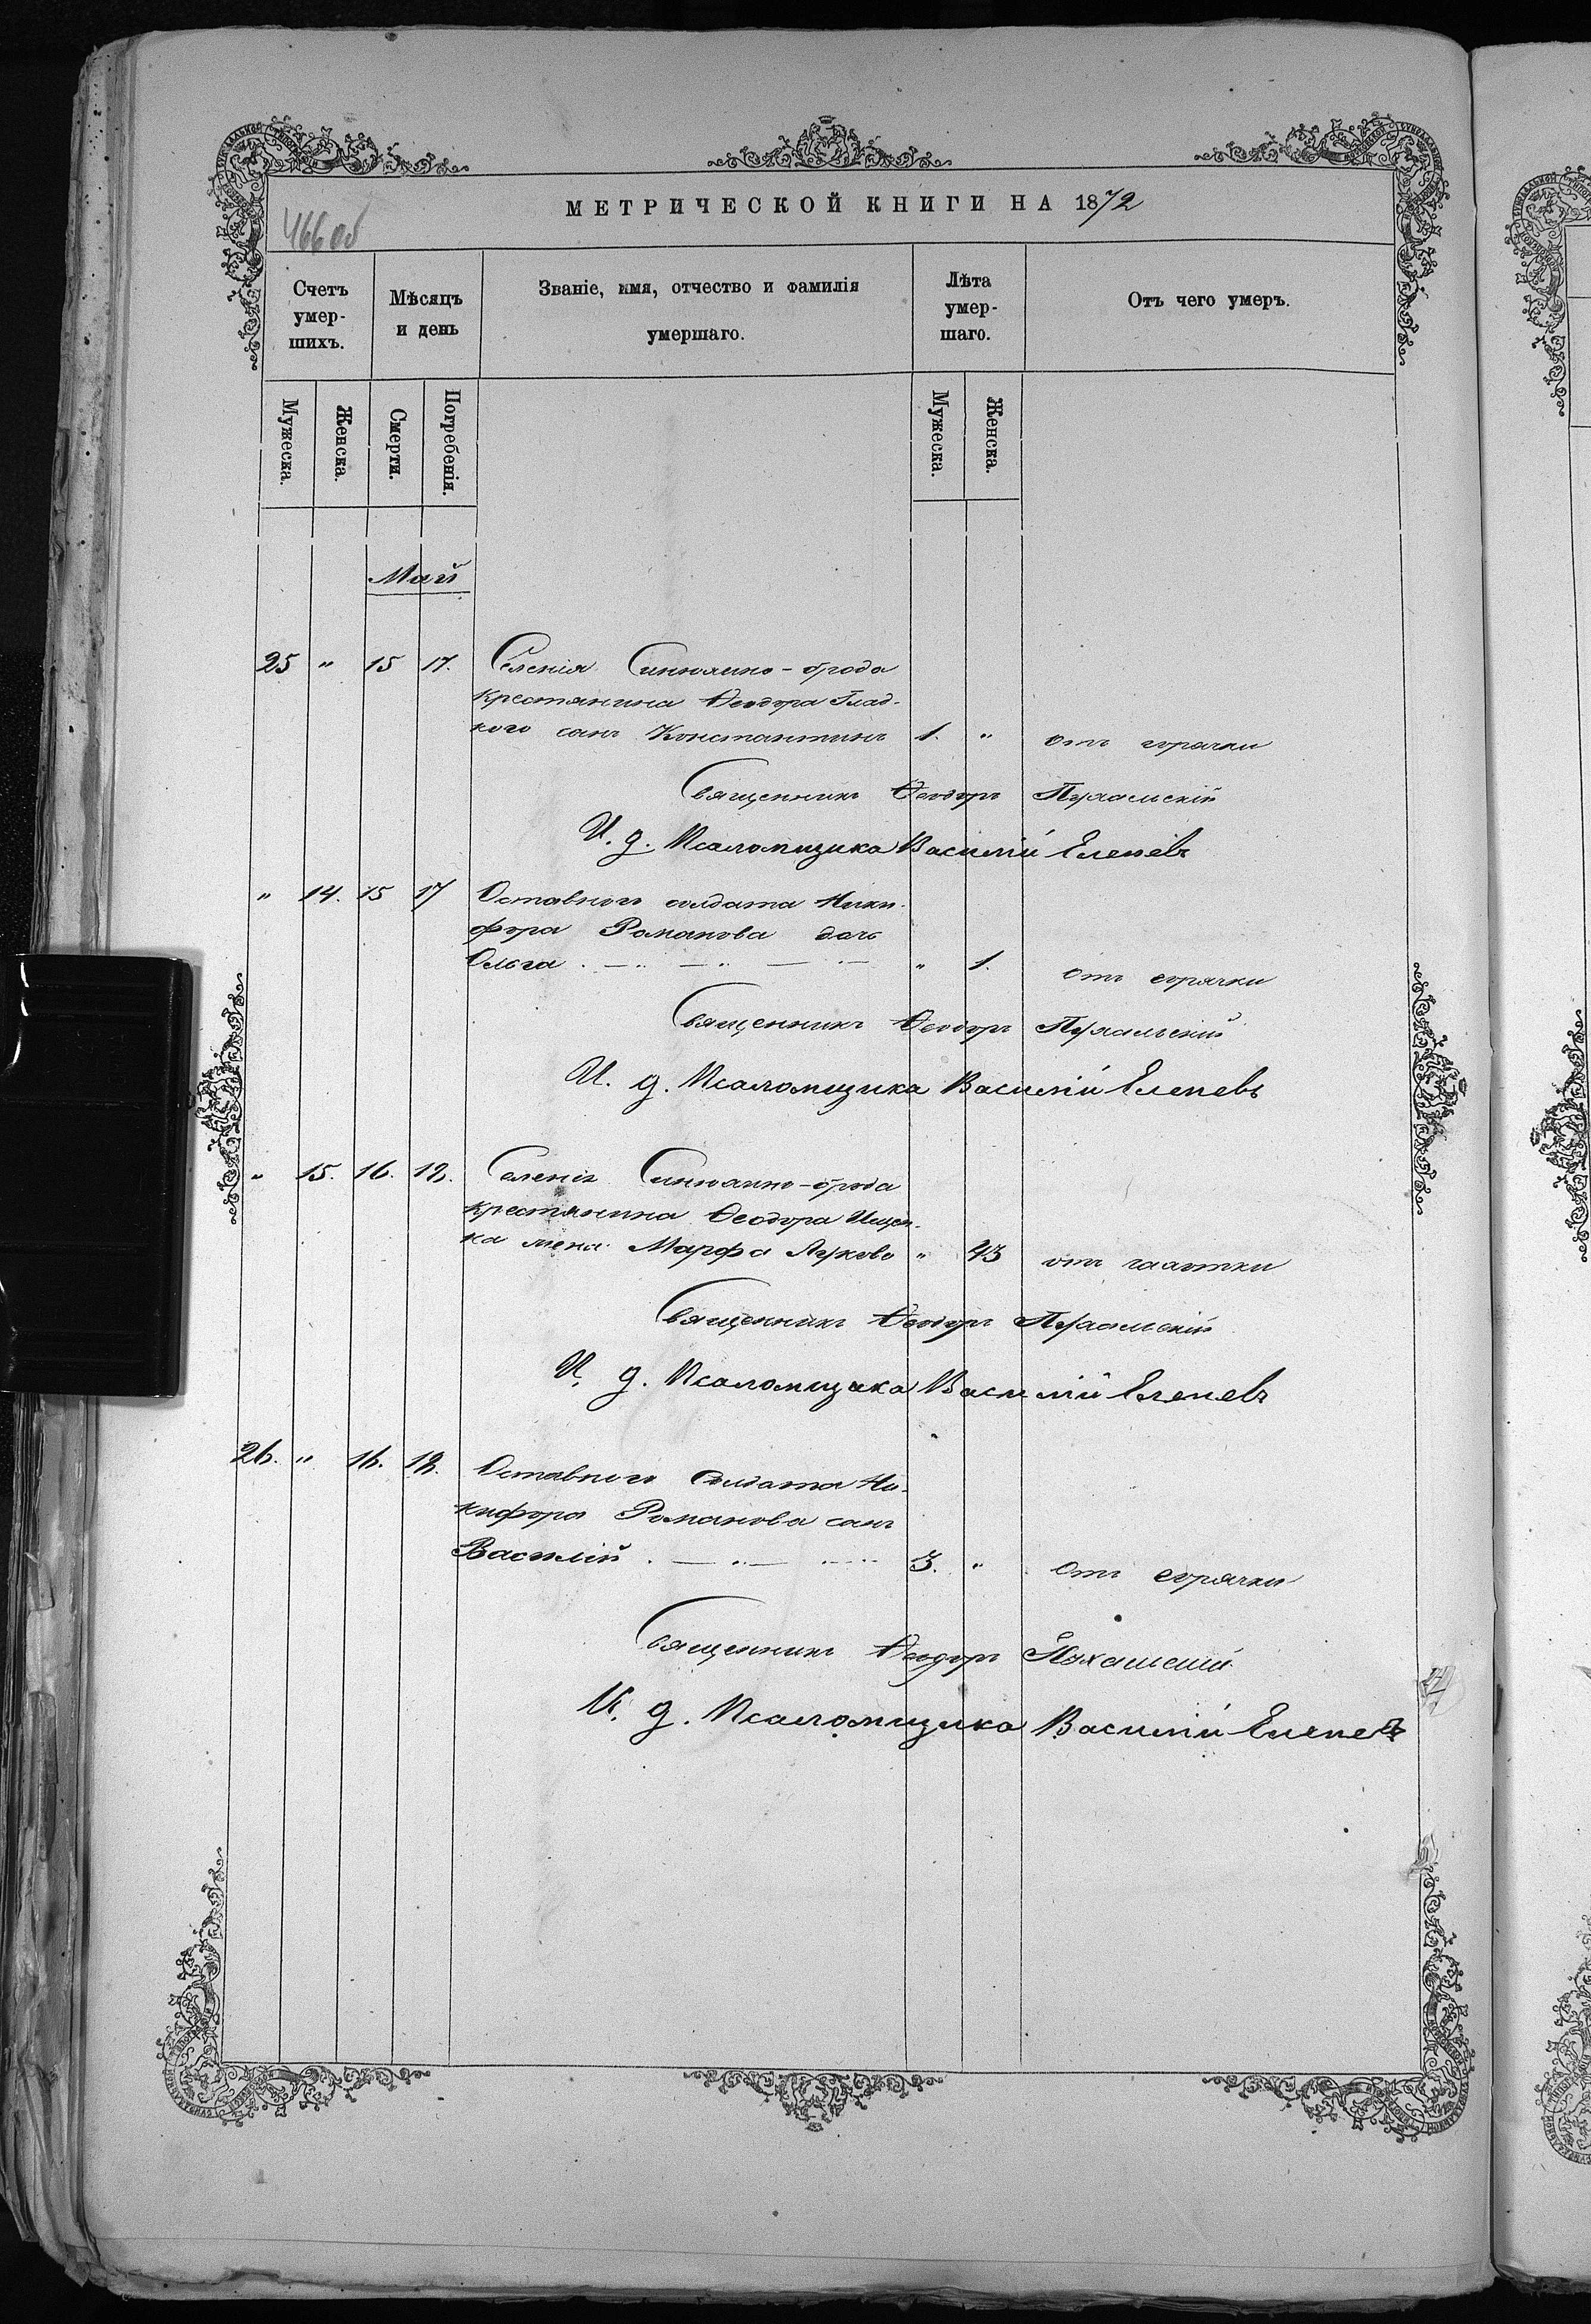 МЕТРИЧЕСКОЙ КНИГИ НА 1872
466 об
Счетъ умер-шихъ.
Мѣсяцъ и день
Званіе, имя, отчество и фамилія умершаго.
Лѣта умер-шаго.
Отъ чего умеръ.
Мужеска.
Женска.
Смерти.
Погребенія.
Мужеска.
Женска.
Май
25 " 15 17. Селенія Синюхино-брода
крестянина Ѳеодора Глад-
кого сынъ Константинъ 1. " отъ горячки
Священникъ Ѳеодоръ
И. д. Псаломщика Василій Еленевъ
" 14. 15 17 Оставного солдата Ники-
фора Романова дочь
Ольга " 1. отъ горячки
Священникъ Ѳеодоръ
И. д. Псаломщика Василій Еленевъ
" 15. 16. 18. Селенія Синюхино-брода
крестянина Ѳеодора Ищен-
ка жена Марфа " 43 отъ
Священникъ Ѳеодоръ
И. д. Псаломщика Василій Еленевъ
26. " 16. 18. Оставного Солдата Ни-
кифора Романова сынъ
Василій 3. " Отъ горячки
Священникъ Ѳеодоръ
И. д. Псаломщика Василій Еленевъ